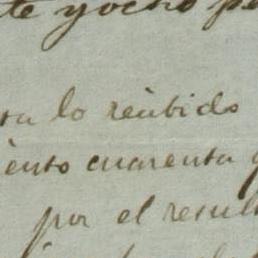 te y ocho pe
ra lo recibido
iento cuarenta y
por el resul